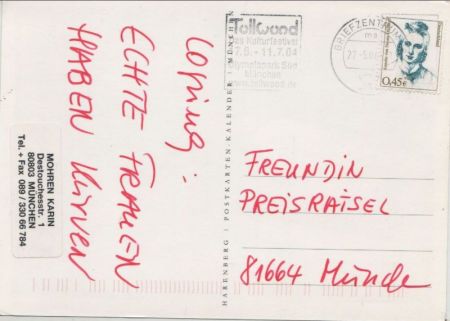 Losung:
ECHTE FRAUEN
HABEN KURVEN
MOHREN KARIN
Destouchesstr. 1
80803 MÜNCHEN
Tel. + Fax 089 / 330 66 784
Tollwood
Das Kulturfestival
7.6. - 11.7.04
Olympiapark Süd
München
www.tollwood.de
BRIEFZENTRUM
0,45€
HARENBERG | POSTKARTEN-KALENDER | MÜNCHEN
FREUNDIN
PREISRÄTSEL
81664 München